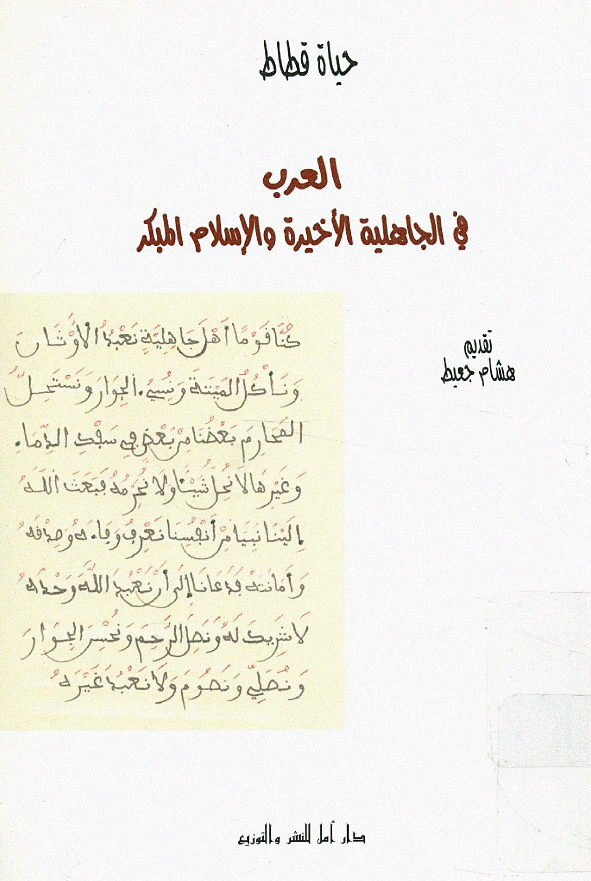 حياة قطاط
العرب
في الجاهلية الأخيرة والإسلام المبكر
تقديم
هشام جعيط
كُنَّا قَوْمًا أَهْلَ جَاهِلِيَّةٍ نَعْبُدُ الْأَوْثَانَ
وَنَأْكُلُ المَيْتَةَ وَنُسِيءُ الجِوَارَ وَنَسْتَحِلُّ
المَحَارِمَ بَعْضُنَا مِنْ بَعْضٍ فِي سَفْكِ الدِّمَاءِ
وَغَيْرِهَا لَا نُحِلُّ شَيْئًا وَلَا نُحَرِّمُهُ فَبَعَثَ اللَّهُ
إِلَيْنَا نَبِيًّا مِنْ أَنْفُسِنَا نَعْرِفُ وَفَاءَهُ وَصِدْقَهُ
وَأَمَانَتَهُ فَدَعَانَا إِلَى أَنْ نَعْبُدَ اللَّهَ وَحْدَهُ
لَا شَرِيكَ لَهُ وَنَصِلَ الرَّحِمَ وَنُحْسِنَ الجِوَارَ
وَنُصَلِّيَ وَنَصُومَ وَلَا نَعْبُدَ غَيْرَهُ
دار أمل للنشر والتوزيع